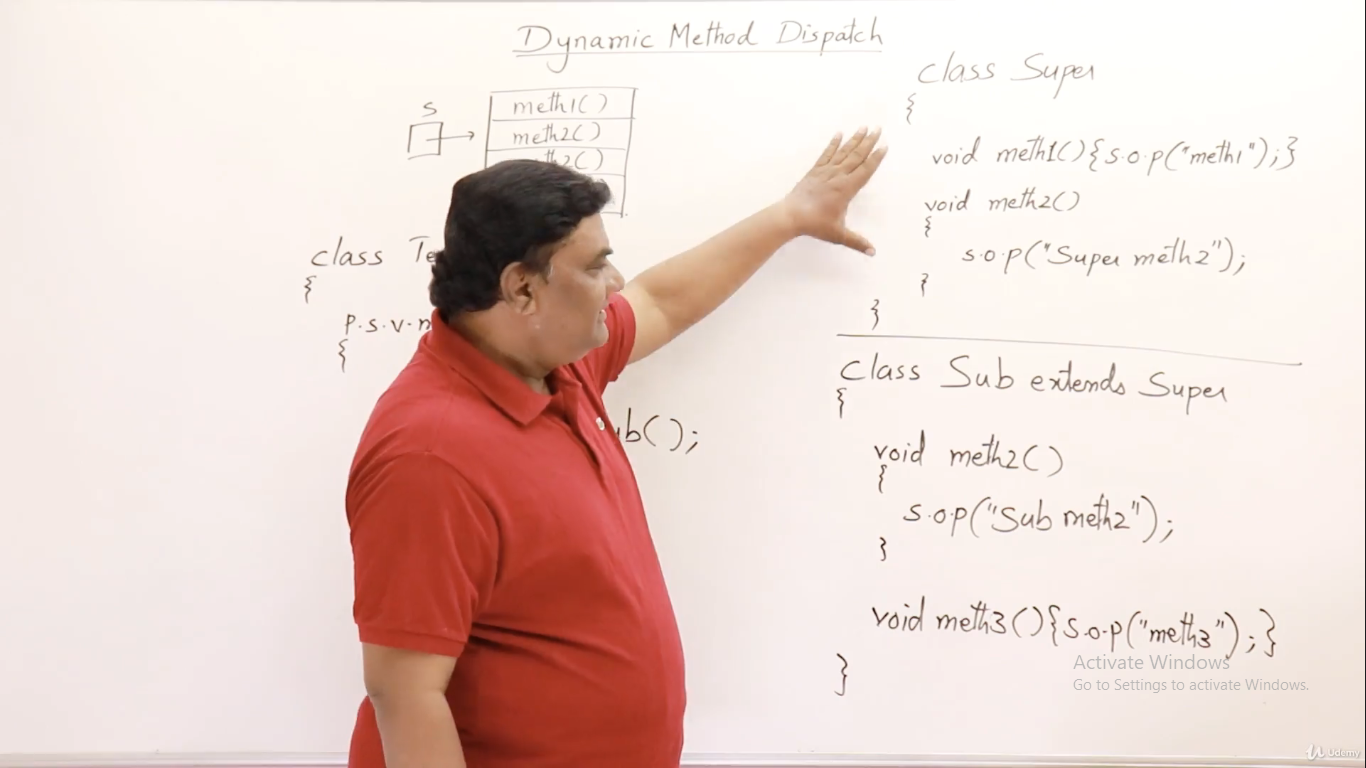 Dynamic Method Dispatch
s
meth1()
meth2()
th2()
class Te
{
p.s.v.m
{
ub();
class Super
{
void meth1(){s.o.p("meth1");}
void meth2()
{
s.o.p("Super meth2");
}
}
class Sub extends Super
{
void meth2()
{
s.o.p("Sub meth2");
}
void meth3(){s.o.p("meth3");}
}
Activate Windows
Go to Settings to activate Windows.
Udemy